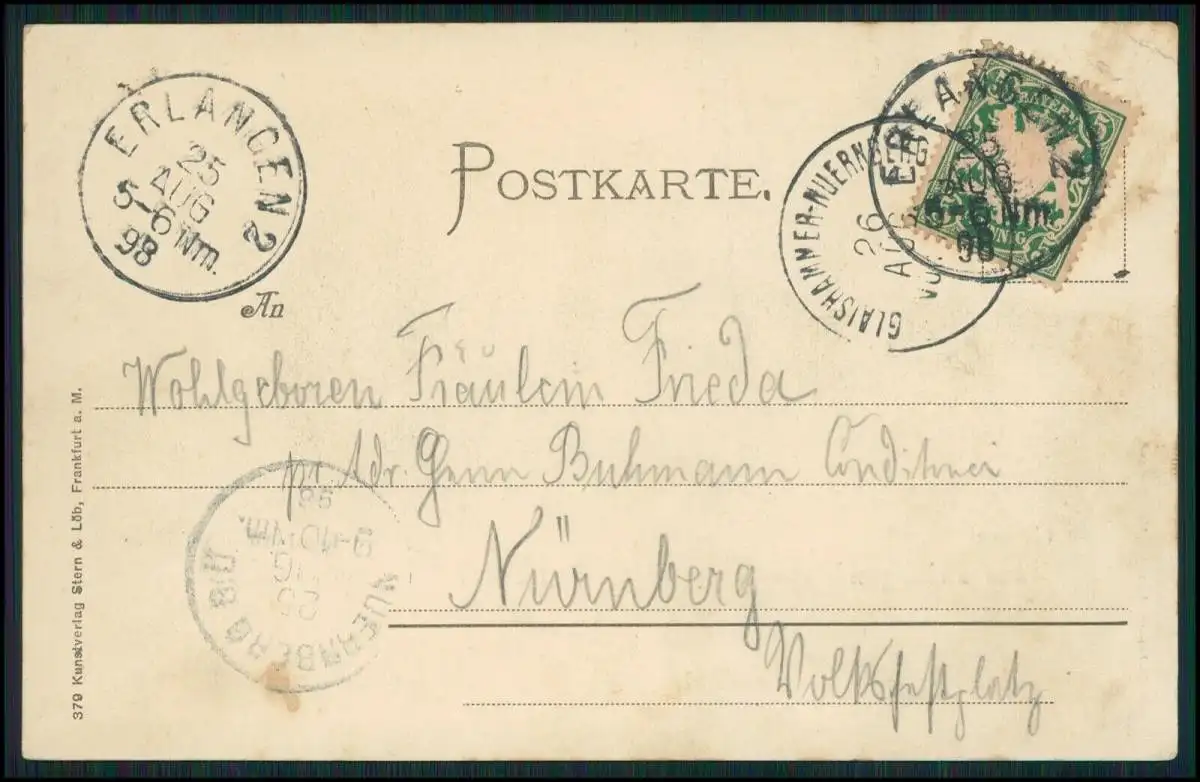 ERLANGEN 2
25
AUG
5-6 Nm.
98
POSTKARTE.
ERLANGEN 2
25
AUG
5-6 Nm.
98
BAYERN
GLAISHAMMER-NUERNBERG
26
AUG
An
Wohlgeboren Fräulein Frieda
pr Adr. Herrn Buhmann Conditorei
Nürnberg
Volksfestplatz
NUERNBERG 8
25
9-10 NM.
98
379 Kunstverlag Stern & Löb, Frankfurt a. M.